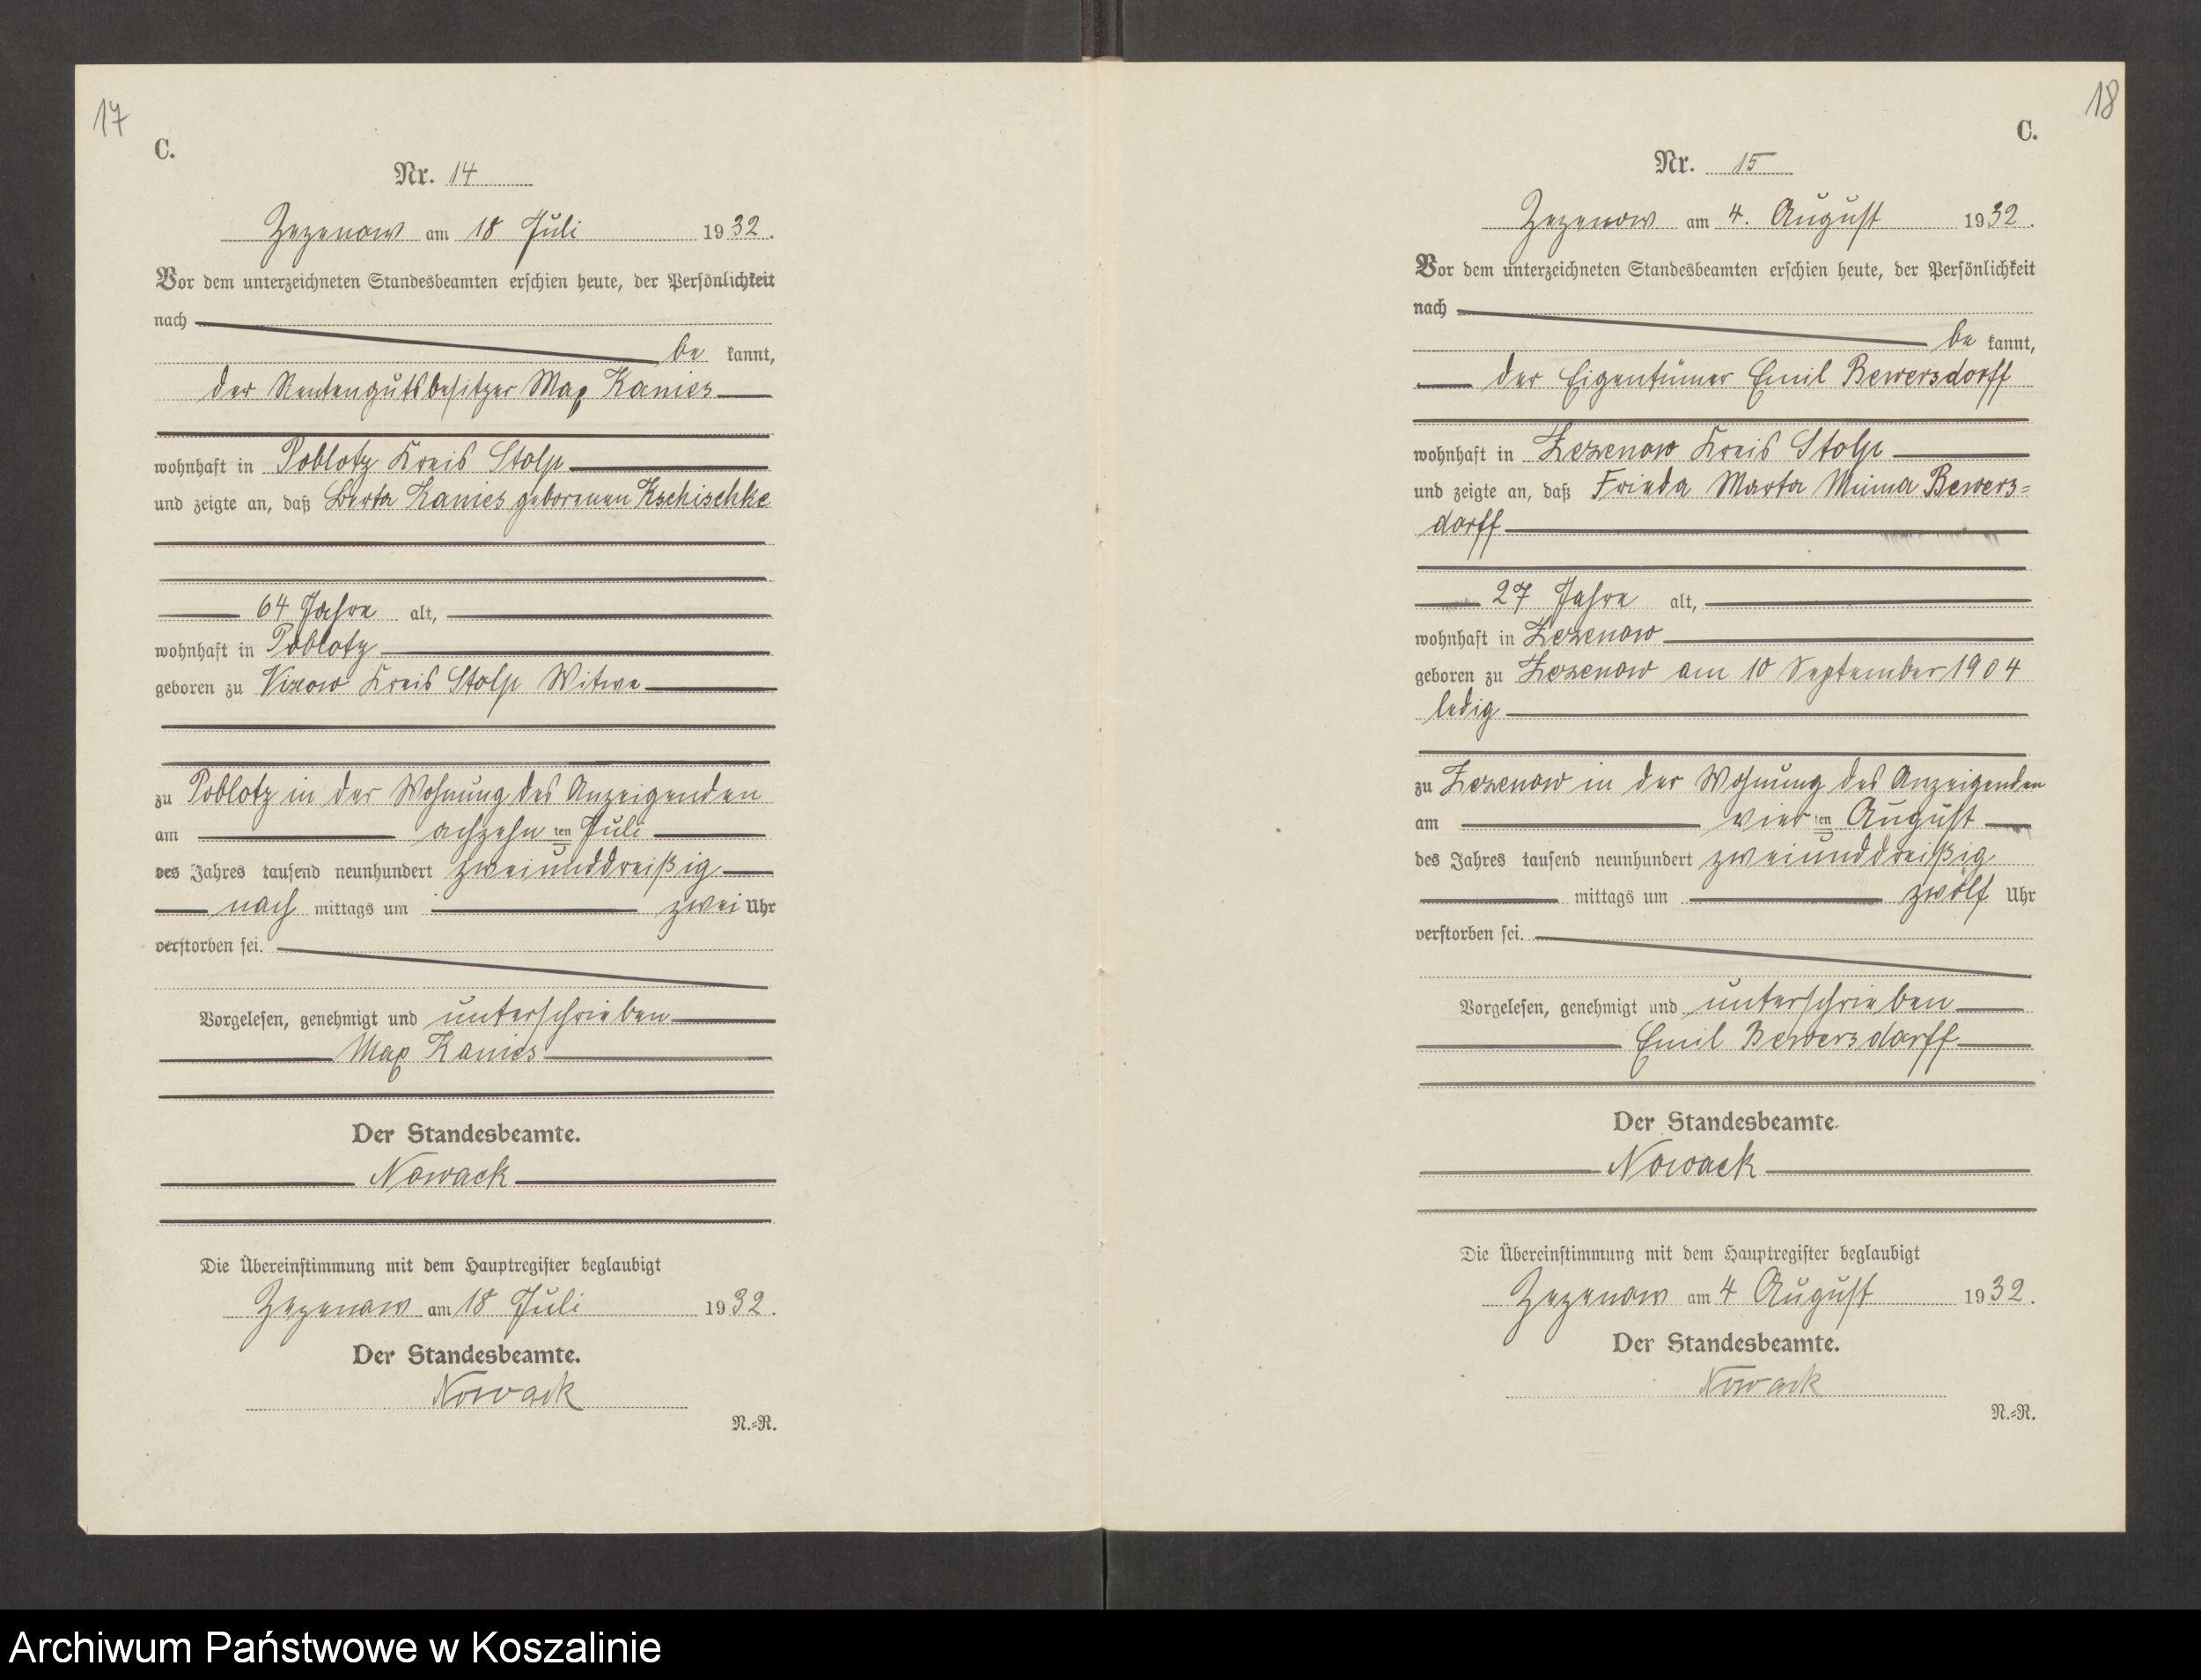 17
C.
Nr. 14
Zezenow am 18 Juli 1932.
Vor dem unterzeichneten Standesbeamten erschien heute, der Persönlichkeit
nach
be kannt,
der Rentengutsbesitzer Max Kanies
wohnhaft in Poblotz Kreis Stolp
und zeigte an, daß Berta Kanies geborenen Kschischke
64 Jahre alt,
wohnhaft in Poblotz
geboren zu Vixow Kreis Stolp Witwe
zu Poblotz in der Wohnung des Anzeigenden
am achzehn ten Juli
des Jahres tausend neunhundert zweiunddreißig
nach mittags um zwei Uhr
verstorben sei.
Vorgelesen, genehmigt und unterschrieben
Max Kanies
Der Standesbeamte.
Nowack
Die Übereinstimmung mit dem Hauptregister beglaubigt
Zezenow am 18 Juli 1932.
Der Standesbeamte.
Nowack
N.=R.
18
C.
Nr. 15
Zezenow am 4. August 1932.
Vor dem unterzeichneten Standesbeamten erschien heute, der Persönlichkeit
nach
be kannt,
der Eigentümer Emil Bewersdorff
wohnhaft in Zezenow Kreis Stolp
und zeigte an, daß Frieda Marta Minna Bewers=
dorff
27 Jahre alt,
wohnhaft in Zezenow
geboren zu Zezenow am 10 September 1904
ledig
zu Zezenow in der Wohnung des Anzeigenden
am vier ten August
des Jahres tausend neunhundert zweiunddreißig
mittags um zwölf Uhr
verstorben sei.
Vorgelesen, genehmigt und unterschrieben
Emil Bewersdorff
Der Standesbeamte.
Nowack
Die Übereinstimmung mit dem Hauptregister beglaubigt
Zezenow am 4 August 1932.
Der Standesbeamte.
Nowack
N.=R.
Archiwum Państwowe w Koszalinie